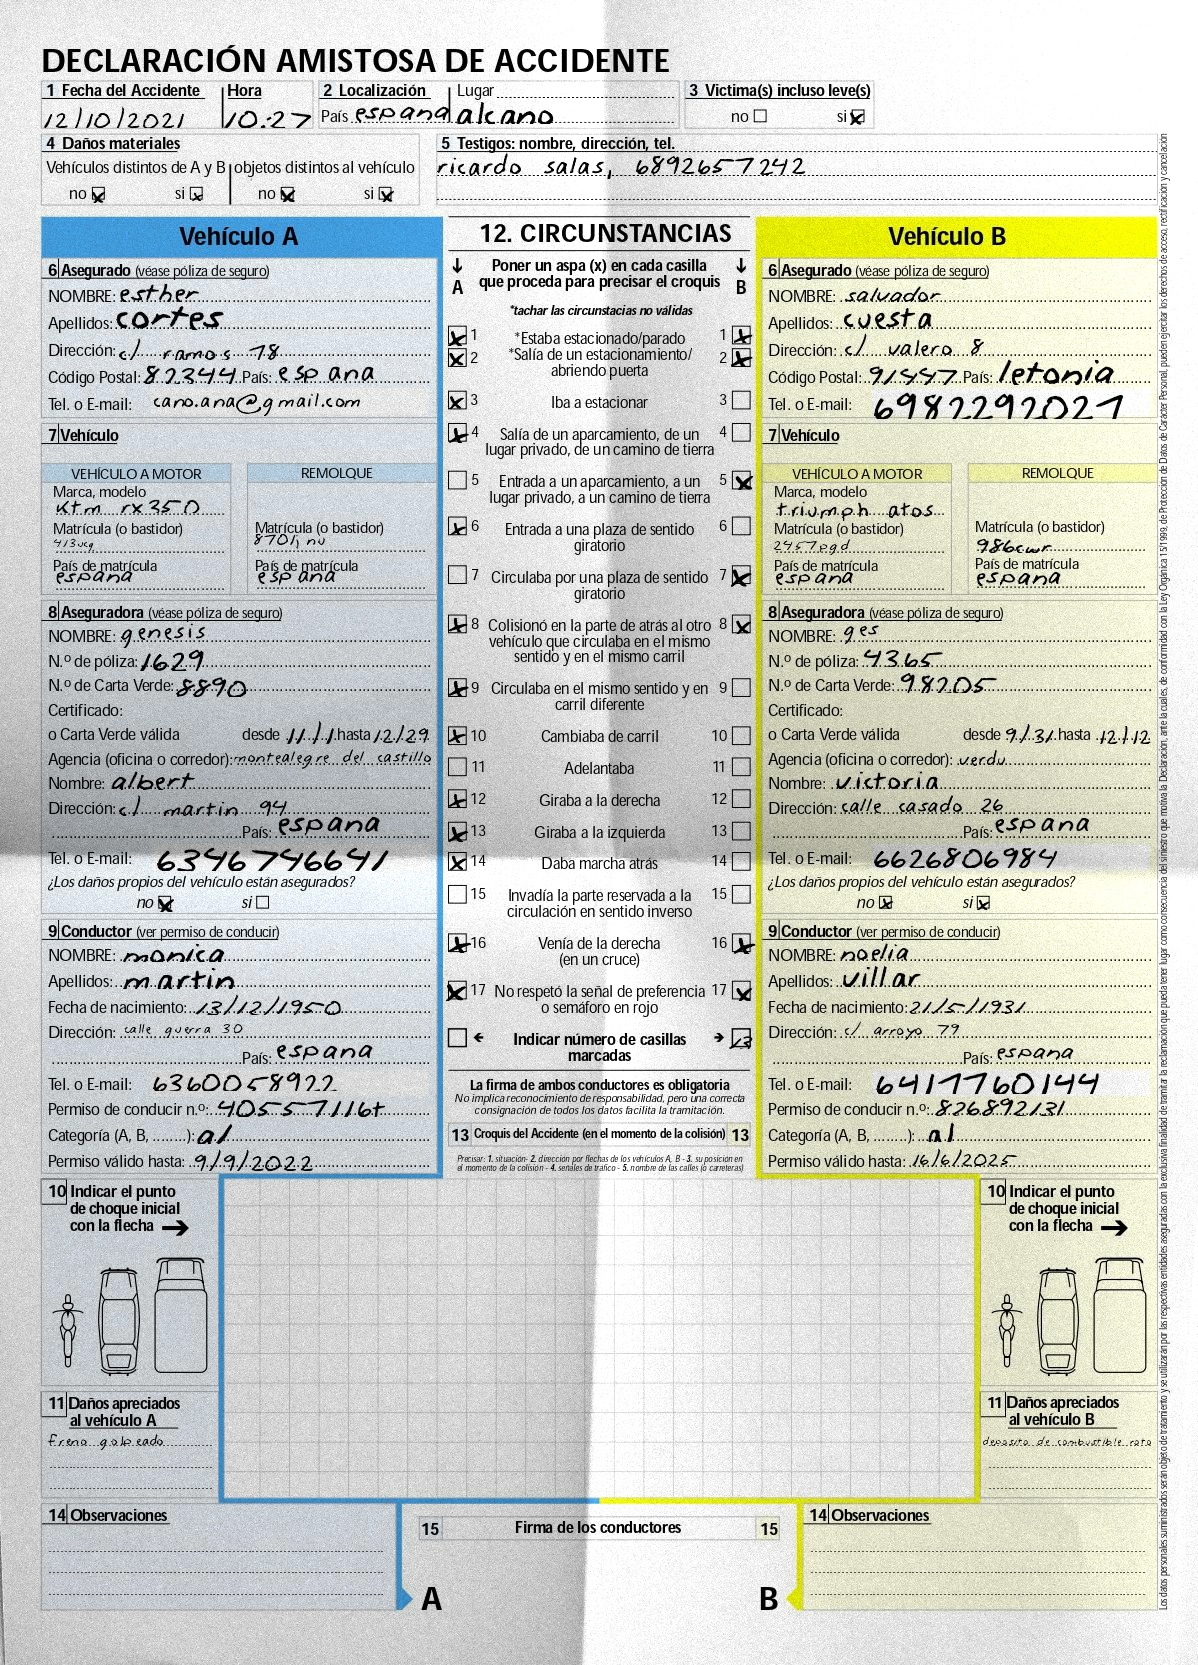 DECLARACIÓN AMISTOSA DE ACCIDENTE
1 Fecha del Accidente Hora 2 Localización Lugar 3 Victima(s) incluso leve(s)
12/10/2021 10:27 País espana alcano no si
4 Daños materiales 5 Testigos: nombre, dirección, tel.
Vehículos distintos de A y B objetos distintos al vehículo ricardo salas, 6892657242
no si no si
Vehículo A
6 Asegurado (véase póliza de seguro)
NOMBRE: esther
Apellidos: cortes
Dirección: c/ ramos 78
Código Postal: 82344 País: espana
Tel. o E-mail: cano.ana@gmail.com
7 Vehículo
VEHÍCULO A MOTOR REMOLQUE
Marca, modelo
ktm rx350
Matrícula (o bastidor) Matrícula (o bastidor)
413ucg
País de matrícula País de matrícula
espana espana
8 Aseguradora (véase póliza de seguro)
NOMBRE: genesis
N.º de póliza: 1629
N.º de Carta Verde: 8890
Certificado:
o Carta Verde válida desde 11/1 hasta 12/29
Agencia (oficina o corredor): montealegre del castillo
Nombre: albert
Dirección: c/ martin 94
País: espana
Tel. o E-mail: 6346746641
¿Los daños propios del vehículo están asegurados?
no si
9 Conductor (ver permiso de conducir)
NOMBRE: monica
Apellidos: martin
Fecha de nacimiento: 13/12/1950
Dirección: calle guerra 30
País: espana
Tel. o E-mail: 6360058922
Permiso de conducir n.º: 405571116t
Categoría (A, B, ........): a1
Permiso válido hasta: 9/9/2022
10 Indicar el punto
de choque inicial
con la flecha
11 Daños apreciados
al vehículo A
freno golpeado
14 Observaciones
12. CIRCUNSTANCIAS
Poner un aspa (x) en cada casilla
A que proceda para precisar el croquis B
*tachar las circunstacias no válidas
1 *Estaba estacionado/parado 1
2 *Salía de un estacionamiento/ 2
abriendo puerta
3 Iba a estacionar 3
4 Salía de un aparcamiento, de un 4
lugar privado, de un camino de tierra
5 Entrada a un aparcamiento, a un 5
lugar privado, a un camino de tierra
6 Entrada a una plaza de sentido 6
giratorio
7 Circulaba por una plaza de sentido 7
giratorio
8 Colisionó en la parte de atrás al otro 8
vehículo que circulaba en el mismo
sentido y en el mismo carril
9 Circulaba en el mismo sentido y en 9
carril diferente
10 Cambiaba de carril 10
11 Adelantaba 11
12 Giraba a la derecha 12
13 Giraba a la izquierda 13
14 Daba marcha atrás 14
15 Invadía la parte reservada a la 15
circulación en sentido inverso
16 Venía de la derecha 16
(en un cruce)
17 No respetó la señal de preferencia 17
o semáforo en rojo
Indicar número de casillas 13
marcadas
La firma de ambos conductores es obligatoria
No implica reconocimiento de responsabilidad, pero una correcta
consignación de todos los datos facilita la tramitación.
13 Croquis del Accidente (en el momento de la colisión) 13
Precisar: 1. situación- 2. dirección por flechas de los vehículos A, B - 3. su posición en
el momento de la colisión - 4. señales de tráfico - 5. nombre de las calles (o carreteras)
15 Firma de los conductores 15
A B
Vehículo B
6 Asegurado (véase póliza de seguro)
NOMBRE: salvador
Apellidos: cuesta
Dirección: c/ valero 8
Código Postal: 91557 País: letonia
Tel. o E-mail: 6982292021
7 Vehículo
VEHÍCULO A MOTOR REMOLQUE
Marca, modelo
triumph atos
Matrícula (o bastidor) Matrícula (o bastidor)
2457pgd 986cwr
País de matrícula País de matrícula
espana espana
8 Aseguradora (véase póliza de seguro)
NOMBRE: ges
N.º de póliza: 4365
N.º de Carta Verde: 98205
Certificado:
o Carta Verde válida desde 9/31 hasta 12/12
Agencia (oficina o corredor): verdu
Nombre: victoria
Dirección: calle casado 26
País: espana
Tel. o E-mail: 6626806984
¿Los daños propios del vehículo están asegurados?
no si
9 Conductor (ver permiso de conducir)
NOMBRE: noelia
Apellidos: villar
Fecha de nacimiento: 21/5/1931
Dirección: c/ arroyo 79
País: espana
Tel. o E-mail: 6417760144
Permiso de conducir n.º: 82689213l
Categoría (A, B, ........): a1
Permiso válido hasta: 16/6/2025
10 Indicar el punto
de choque inicial
con la flecha
11 Daños apreciados
al vehículo B
deposito de combustible roto
14 Observaciones
Los datos personales suministrados serán objeto de tratamiento y se utilizarán por las respectivas entidades aseguradas con la exclusiva finalidad de tramitar la reclamación que pueda tener lugar como consecuencia del siniestro que motiva la Declaración, ante la cuales, de conformidad con la Ley Orgánica 15/1999, de Protección de Datos de Carácter Personal, pueden ejercitar los derechos de acceso, rectificación y cancelación